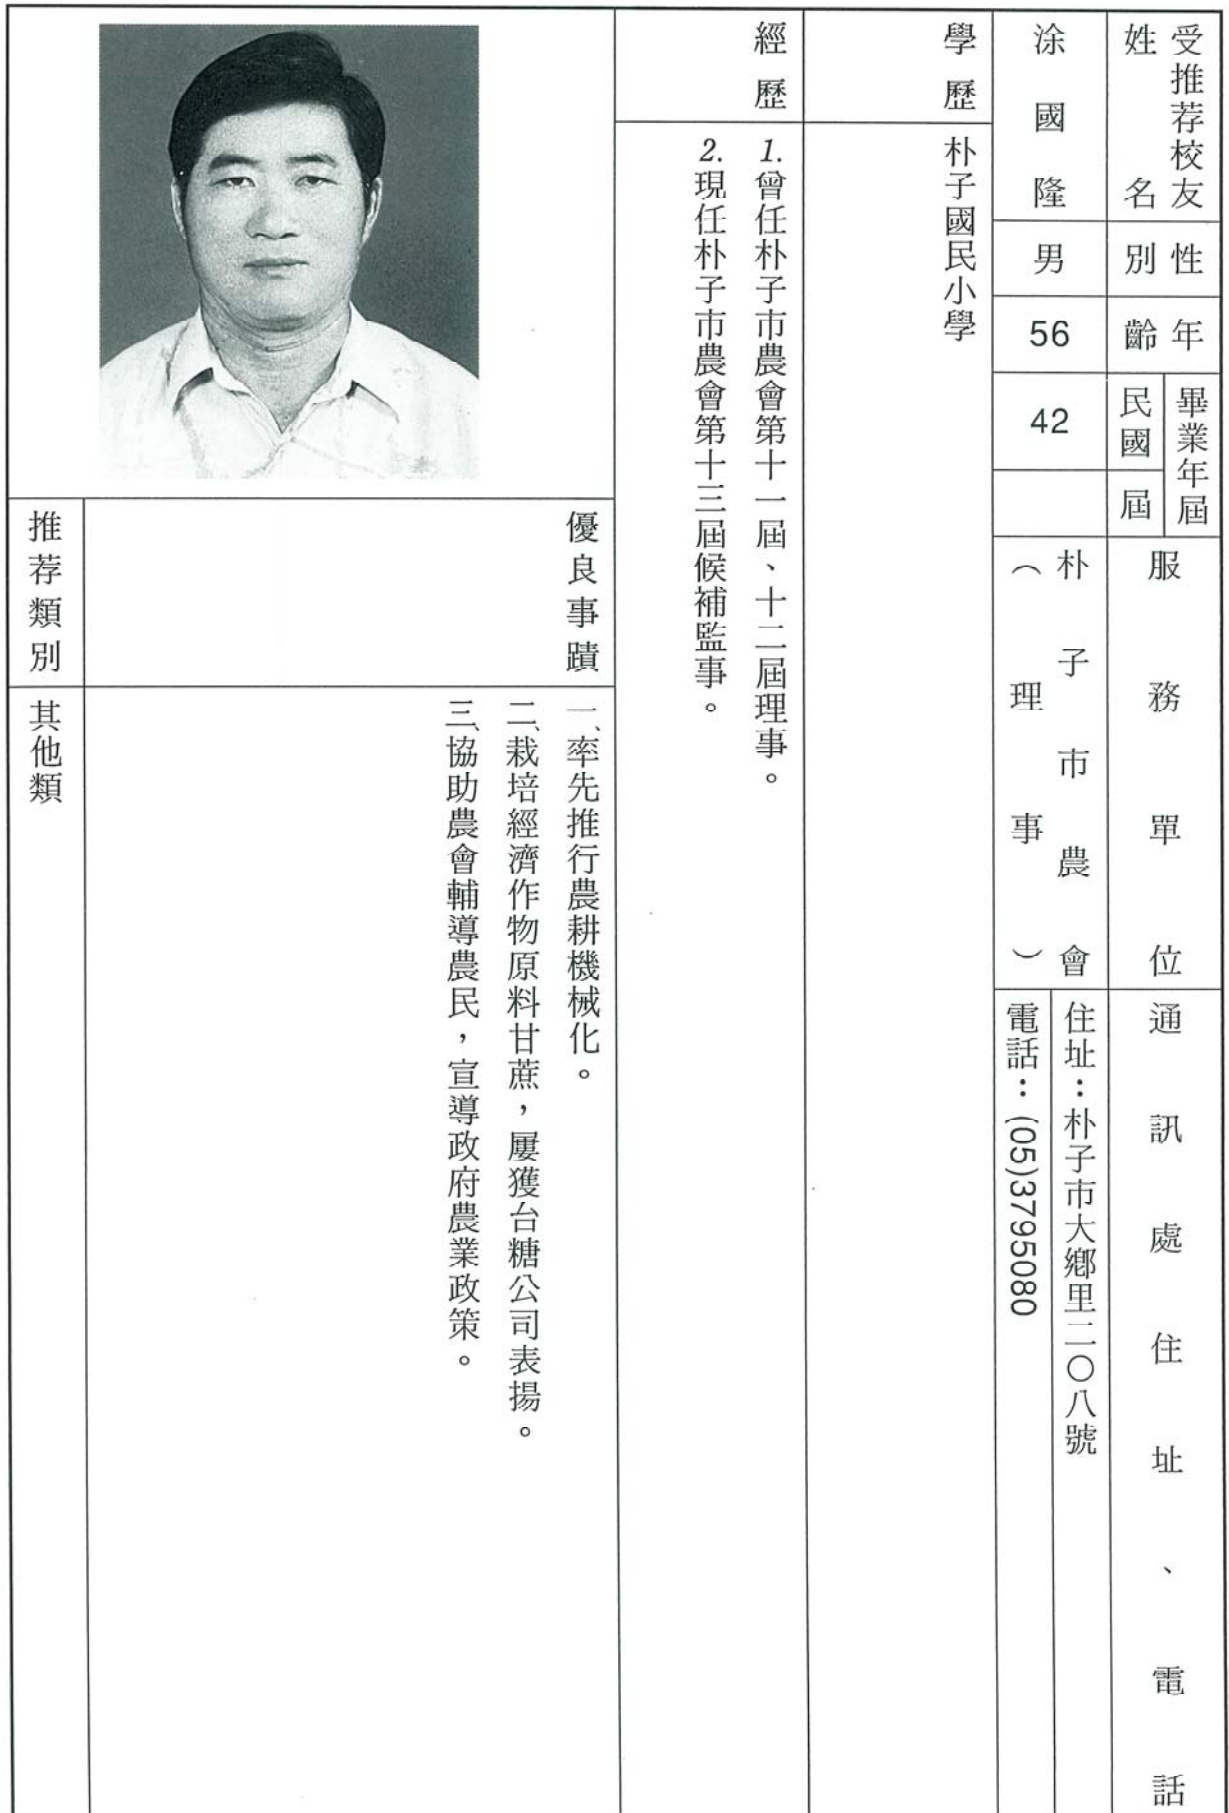 受推荐校友
姓名
性別
年齡
畢業年屆
民國
屆
服務單位
通訊處住址、電話
涂國隆
男
56
42
朴子市農會
（理事）
住址：朴子市大鄉里二〇八號
電話：(05)3795080
學歷
朴子國民小學
經歷
1.曾任朴子市農會第十一屆、十二屆理事。
2.現任朴子市農會第十三屆候補監事。
優良事蹟
一、率先推行農耕機械化。
二、栽培經濟作物原料甘蔗，屢獲台糖公司表揚。
三、協助農會輔導農民，宣導政府農業政策。
推荐類別
其他類